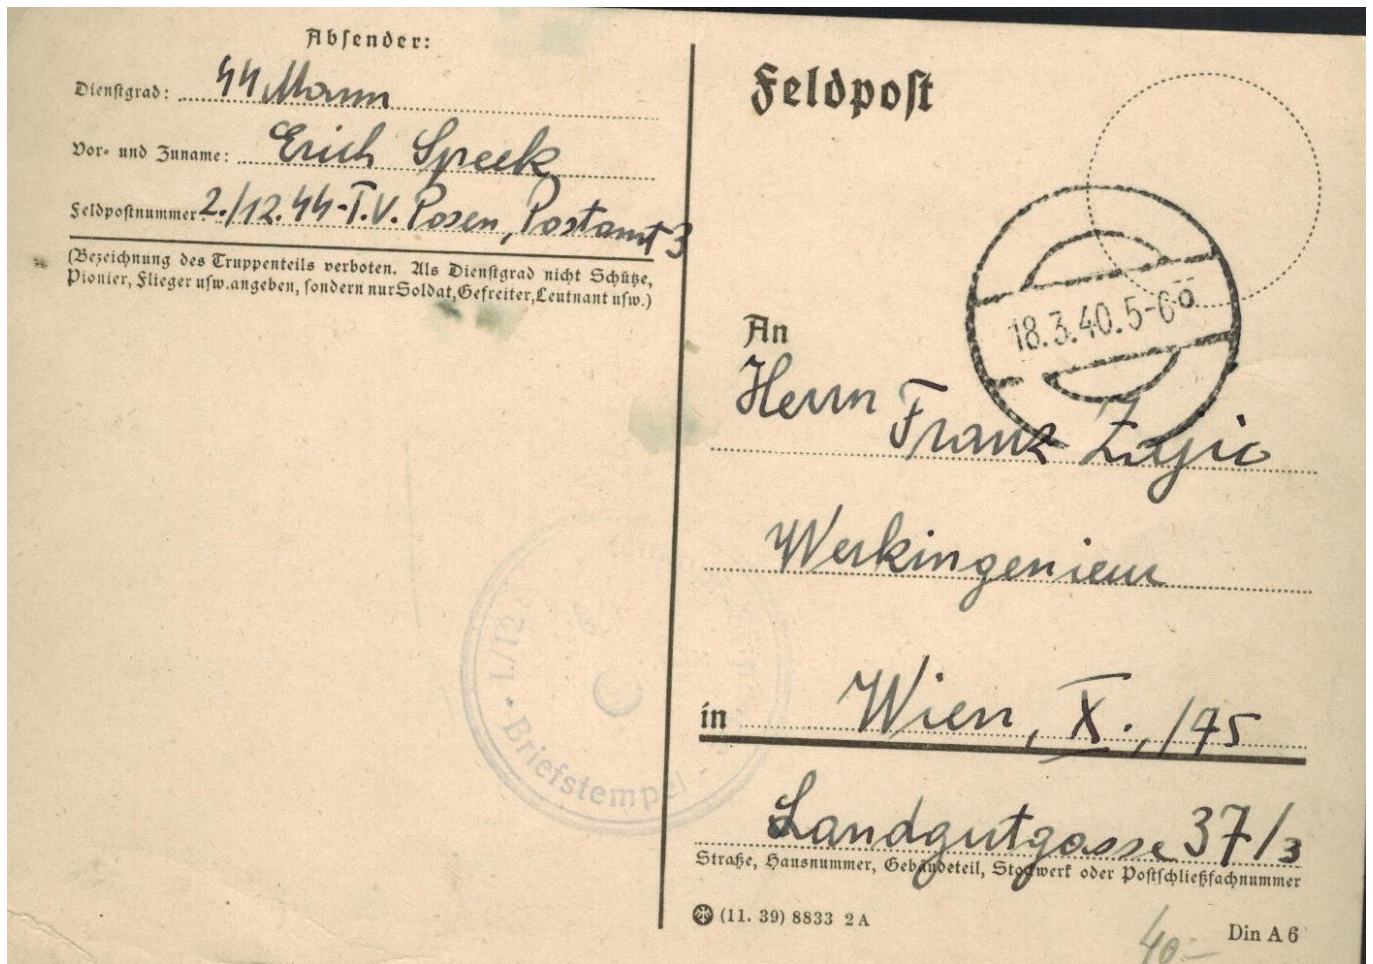 Absender:
Dienstgrad: SS Mann
Vor- und Zuname: Erich Speck
Feldpostnummer: 2./12. SS-T.V. Posen, Postamt 3
(Bezeichnung des Truppenteils verboten. Als Dienstgrad nicht Schütze,
Pionier, Flieger usw. angeben, sondern nur Soldat, Gefreiter, Leutnant usw.)
Feldpost
18.3.40.5-6
An
Herrn Franz
Werkingenieur
in Wien, X., /75
Landgutgasse 37/3
Straße, Hausnummer, Gebäudeteil, Stockwerk oder Postschließfachnummer
(11. 39) 8833 2 A
Din A 6
40.-
I./12.
Briefstempel